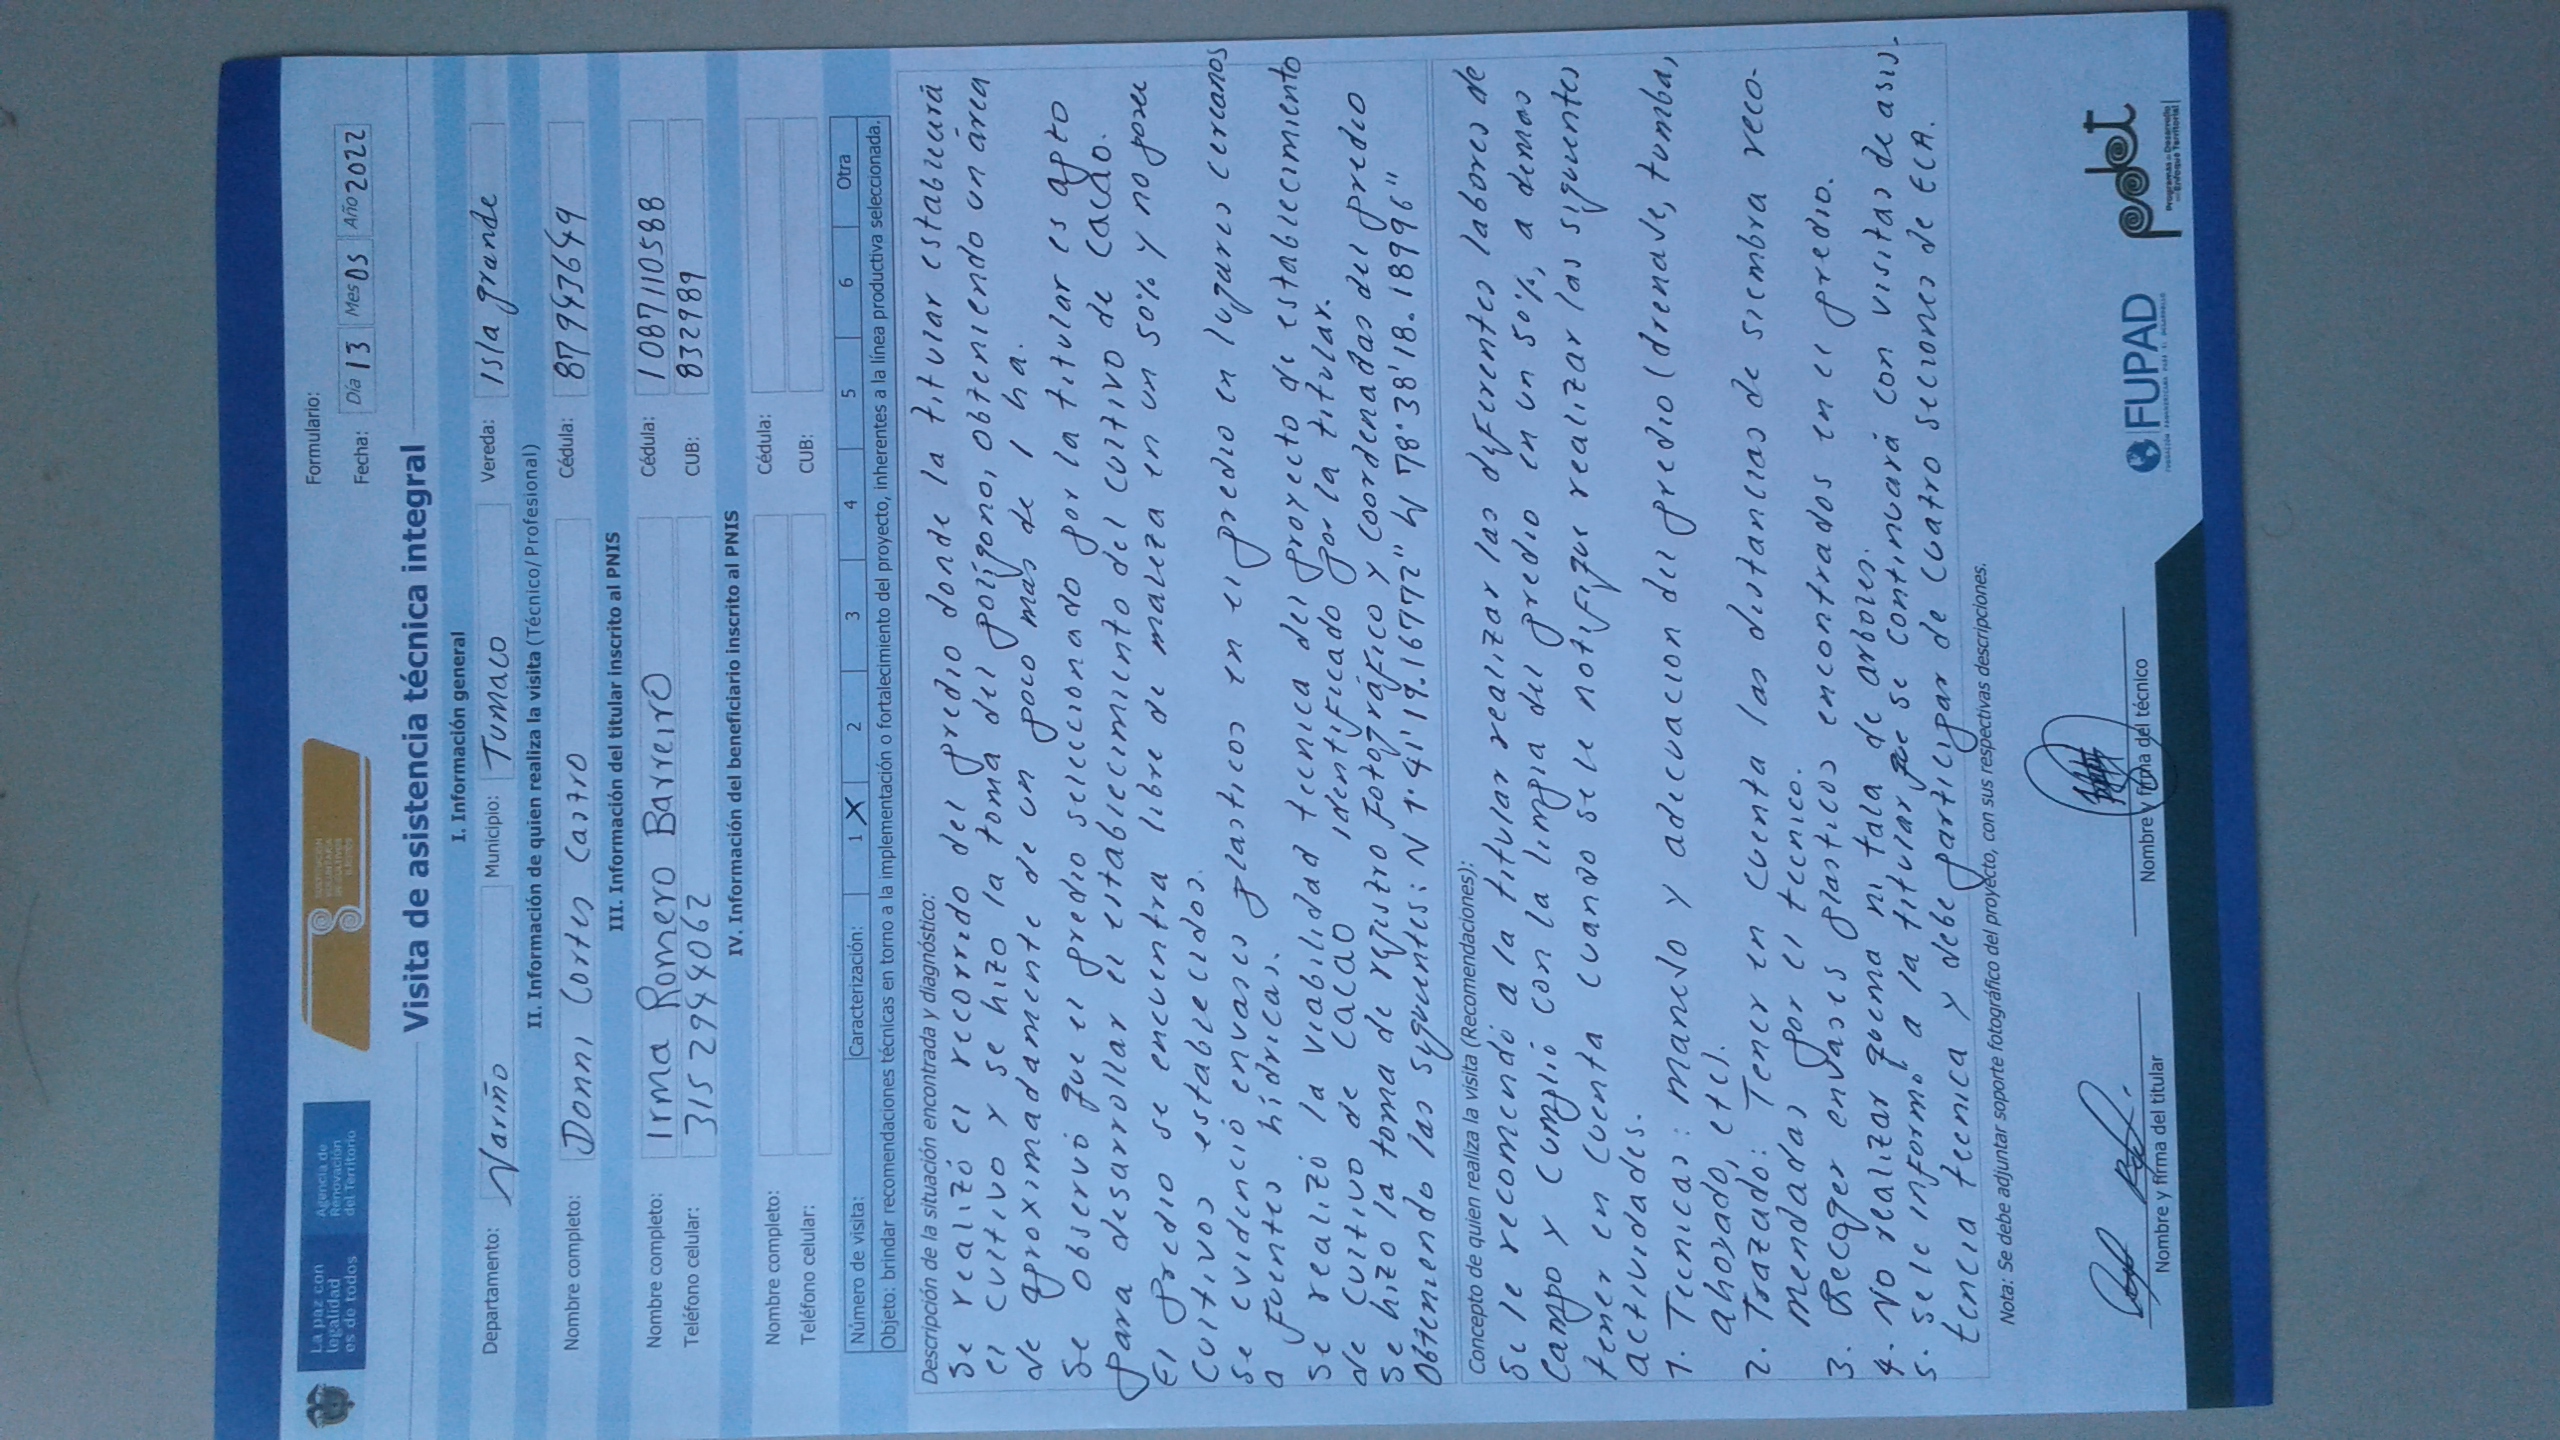 La paz con
legalidad
es de todos
Agencia de
Renovación
del Territorio
SUSTITUCIÓN
VOLUNTARIA
DE CULTIVOS
ILÍCITOS
Formulario:
Fecha: Día 13 Mes 05 Año 2022
Visita de asistencia técnica integral
I. Información general
Departamento: Nariño Municipio: Tumaco Vereda: Isla grande
II. Información de quien realiza la visita (Técnico/Profesional)
Nombre completo: Donni Cortes Castro Cédula: 87943649
III. Información del titular inscrito al PNIS
Nombre completo: Irma Romero Barreiro Cédula: 1087110588
Teléfono celular: 3152944062 CUB: 832989
IV. Información del beneficiario inscrito al PNIS
Nombre completo: Cédula:
Teléfono celular: CUB:
Número de visita: Caracterización: 1 X 2 3 4 5 6 Otra
Objeto: brindar recomendaciones técnicas en torno a la implementación o fortalecimiento del proyecto, inherentes a la línea productiva seleccionada.
Descripción de la situación encontrada y diagnóstico:
Se realizó el recorrido del predio donde la titular establecerá
el cultivo y se hizo la toma del polígono, obteniendo un área
de aproximadamente de un poco mas de 1 ha.
Se observó que el predio seleccionado por la titular es apto
para desarrollar el establecimiento del cultivo de cacao.
El predio se encuentra libre de maleza en un 50% y no posee
cultivos establecidos.
Se evidenció envases plasticos en el predio en lugares cercanos
a fuentes hídricas.
Se realizó la viabilidad tecnica del proyecto de establecimiento
de cultivo de cacao identificado por la titular.
Se hizo la toma de registro Fotográfico y coordenadas del predio
Obteniendo las siguientes: N 1°41'19.16772" W 78°38'18.18996"
Concepto de quien realiza la visita (Recomendaciones):
Se le recomendó a la titular realizar las diferentes labores de
campo y cumplió con la limpia del predio en un 50%, a demas
tener en cuenta cuando se le notifique realizar las siguentes
actividades.
1. Tecnicas: manejo y adecuacion del predio (drenaje, tumba,
ahoyado, etc).
2. Trazado: Tener en cuenta las distancias de siembra reco-
mendadas por el tecnico.
3. Recoger envases plasticos encontrados en el predio.
4. No realizar quema ni tala de arboles.
5. Se le informó a la titular que se continuará con visitas de asis-
tencia tecnica y debe participar de cuatro secciones de ECA.
Nota: Se debe adjuntar soporte fotográfico del proyecto, con sus respectivas descripciones.
Nombre y firma del titular
Nombre y firma del técnico
FUPAD
pdet
Programas de Desarrollo
con Enfoque Territorial